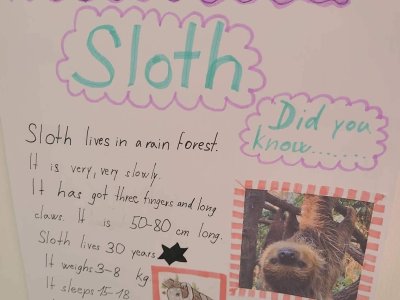 Sloth
Did you
know.......
Sloth lives in a rain forest.
It is very, very slowly.
It has got three fingers and long
claws. It is 50-80 cm long.
Sloth lives 30 years
It weighs 3-8 kg
It sleeps 15-18